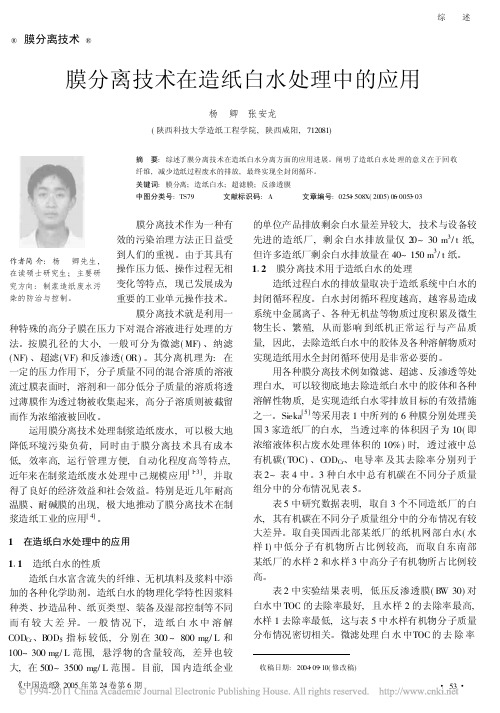 综　述
® 膜分离技术 ®
膜分离技术在造纸白水处理中的应用
杨　卿　张安龙
(陕西科技大学造纸工程学院, 陕西咸阳, 712081)
摘　要: 综述了膜分离技术在造纸白水分离方面的应用进展。阐明了造纸白水处理的意义在于回收
纤维, 减少造纸过程废水的排放, 最终实现全封闭循环。
关键词: 膜分离; 造纸白水; 超滤膜; 反渗透膜
中图分类号: TS79　　文献标识码: A　　文章编号: 0254-508X(2005)06-0053-03
作者简介: 杨　卿先生,
在读硕士研究生; 主要研
究方向: 制浆造纸废水污
染的防治与控制。
膜分离技术作为一种有
效的污染治理方法正日益受
到人们的重视。由于其具有
操作压力低、操作过程无相
变化等特点, 现已发展成为
重要的工业单元操作技术。
膜分离技术就是利用一
种特殊的高分子膜在压力下对混合溶液进行处理的方
法。按膜孔径的大小, 一般可分为微滤(MF)、纳滤
(NF)、超滤(VF) 和反渗透(OR)。其分离机理为: 在
一定的压力作用下, 分子质量不同的混合溶质的溶液
流过膜表面时, 溶剂和一部分低分子质量的溶质将透
过薄膜作为透过物被收集起来, 高分子溶质则被截留
而作为浓缩液被回收。
运用膜分离技术处理制浆造纸废水, 可以极大地
降低环境污染负荷, 同时由于膜分离技术具有成本
低, 效率高, 运行管理方便, 自动化程度高等特点,
近年来在制浆造纸废水处理中已规模应用[1-3], 并取
得了良好的经济效益和社会效益。特别是近几年耐高
温膜、耐碱膜的出现, 极大地推动了膜分离技术在制
浆造纸工业的应用[4]。
1　在造纸白水处理中的应用
1. 1　造纸白水的性质
造纸白水富含流失的纤维、无机填料及浆料中添
加的各种化学助剂。造纸白水的物理化学特性因浆料
种类、抄造品种、纸页类型、装备及湿部控制等不同
而有较大差异。一般情况下, 造纸白水中溶解
CODCr、BOD5 指标较低, 分别在 300~ 800 mg/ L 和
100~ 300 mg/ L 范围, 悬浮物的含量较高, 差异也较
大, 在 500~ 3500 mg/ L 范围。目前, 国内造纸企业
的单位产品排放剩余白水量差异较大, 技术与设备较
先进的造纸厂, 剩余白水排放量仅 20~ 30 m3/ t 纸,
但许多造纸厂剩余白水排放量在 40~ 150 m3/ t 纸。
1. 2　膜分离技术用于造纸白水的处理
造纸过程白水的排放量取决于造纸系统中白水的
封闭循环程度。白水封闭循环程度越高, 越容易造成
系统中金属离子、各种无机盐等物质过度积累及微生
物生长、繁殖, 从而影响到纸机正常运行与产品质
量, 因此, 去除造纸白水中的胶体及各种溶解物质对
实现造纸用水全封闭循环使用是非常必要的。
用各种膜分离技术例如微滤、超滤、反渗透等处
理白水, 可以较彻底地去除造纸白水中的胶体和各种
溶解性物质, 是实现造纸白水零排放目标的有效措施
之一。Sierka[5]等采用表 1 中所列的 6 种膜分别处理美
国 3 家造纸厂的白水, 当透过率的体积因子为 10(即
浓缩液体积占废水处理体积的 10%) 时, 透过液中总
有机碳(TOC)、CODCr、电导率及其去除率分别列于
表 2~ 表 4 中。3 种白水中总有机碳在不同分子质量
组分中的分布情况见表 5。
表 5 中研究数据表明, 取自 3 个不同造纸厂的白
水, 其有机碳在不同分子质量组分中的分布情况有较
大差异。取自美国西北部某纸厂的纸机网部白水(水
样 1) 中低分子有机物所占比例较高, 而取自东南部
某纸厂的水样 2 和水样 3 中高分子有机物所占比例较
高。
表 2 中实验结果表明, 低压反渗透膜(BW 30) 对
白水中 TOC 的去除率最好, 且水样 2 的去除率最高,
水样 1 去除率最低, 这与表 5 中水样有机物分子质量
分布情况密切相关。微滤处理白水中TOC 的去除率
收稿日期: 2004-09-10(修改稿)
《中国造纸》2005 年第 24 卷第 6 期
• 53 •
© 1994-2011 China Academic Journal Electronic Publishing House. All rights reserved.　http://www.cnki.net